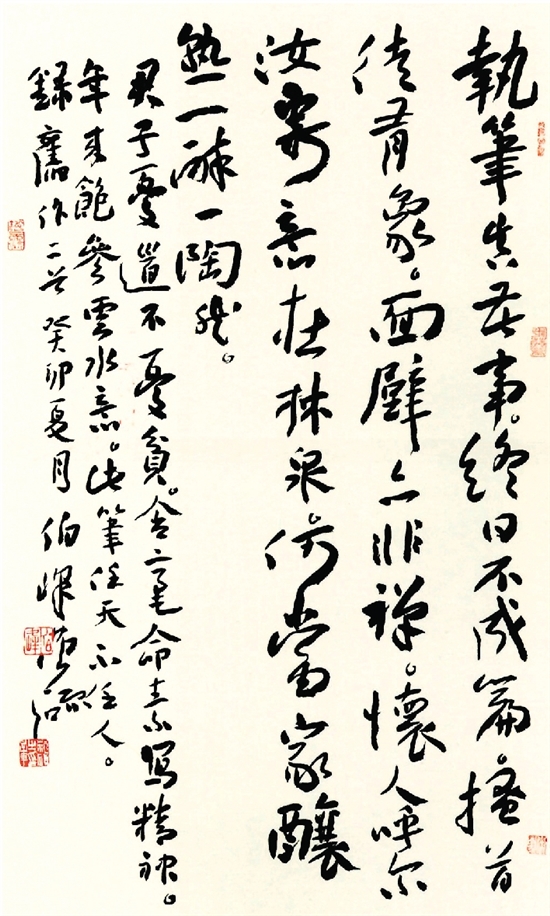 執筆真苦事。終日不成篇。搔首
徒有象。面壁亦非禅。懷人呼尔
汝寄意在林泉。何當家釀
熟一酹一陶然。
君子憂道不憂貧。含毫命素寫精神。
年來飽參雲水意。此筆任天不任人。
錄舊作二首癸卯夏月伯